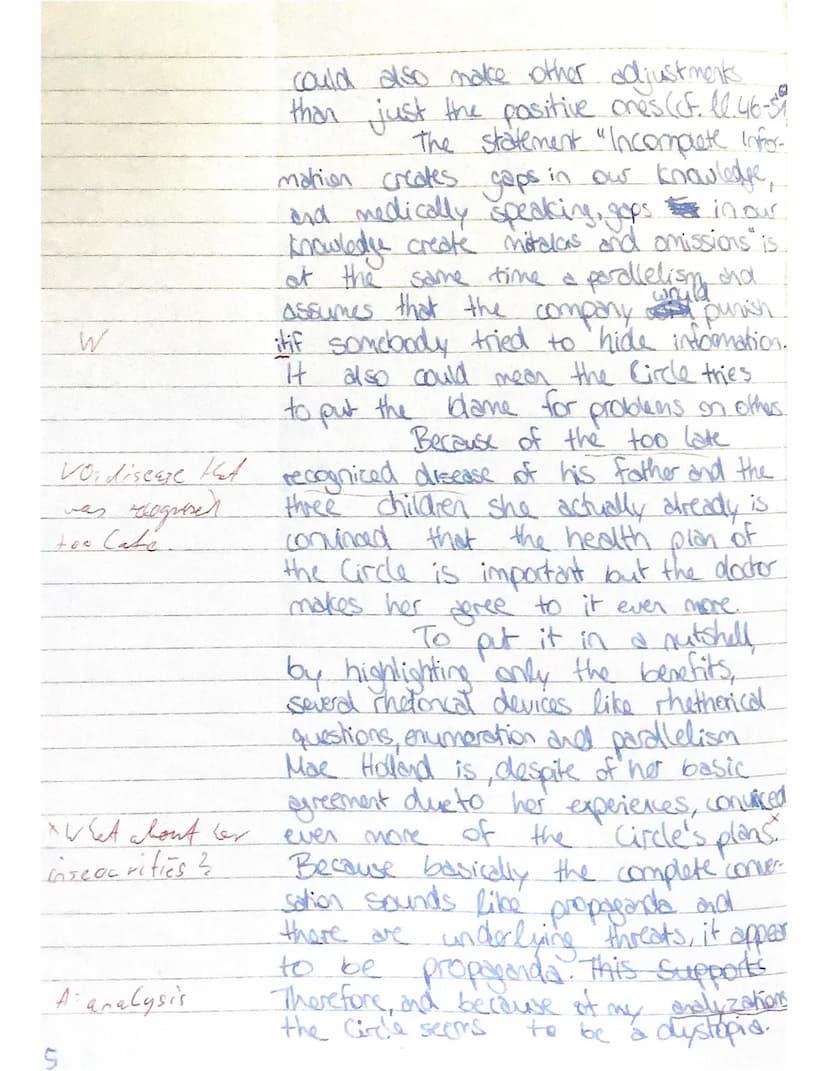 could also make other adjustments
than just the positive ones (cf. ll. 46-51)
The statement "Incomplete Infor-
mation creates gaps in our knowledge,
and medically speaking, gaps in our
knowledge create mistakes and omissions" is
at the same time a parallelism and
assumes that the company would punish
W
it if somebody tried to hide information.
It also could mean the Circle tries
to put the blame for problems on others
Because of the too late
VO: disease that
recogniced disease of his father and the
was recognized
three children she actually already is
too late
convinced that the health plan of
the Circle is important but the doctor
makes her agree to it even more.
To put it in a nutshell,
by highlighting only the benefits,
several rhetorical devices like rhetherical
questions, enumeration and parallelism
Mae Holland is, despite of her basic
agreement due to her experiences, convinced
x What about her
even more of the Circle's plans.x
insecurities?
Because basically the complete conver-
sation sounds like propaganda and
there are underlying threats, it appear
to be propaganda. This supports
A: analysis
Therefore, and because of my analyzations
the Circle seems to be a dystopia.
5